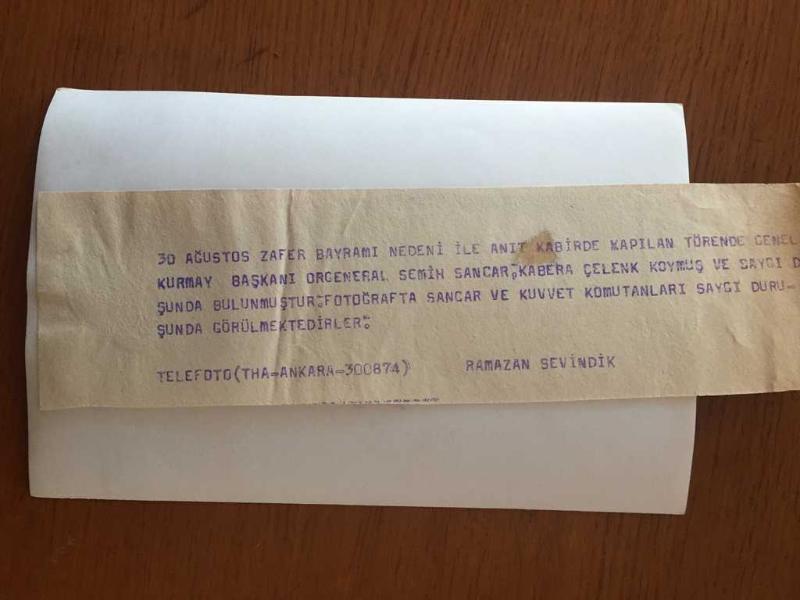 30 AĞUSTOS ZAFER BAYRAMI NEDENİ İLE ANIT KABİRDE KAPILAN TÖRENDE GENEL
KURMAY BAŞKANI ORGENERAL SEMİH SANCAR,KABERA ÇELENK KOYMUŞ VE SAYGI D
ŞUNDA BULUNMUŞTUR.FOTOĞRAFTA SANCAR VE KUVVET KOMUTANLARI SAYGI DURU-
ŞUNDA GÖRÜLMEKTEDİRLER.
TELEFOTO(THA-ANKARA-300874) RAMAZAN SEVİNDİK